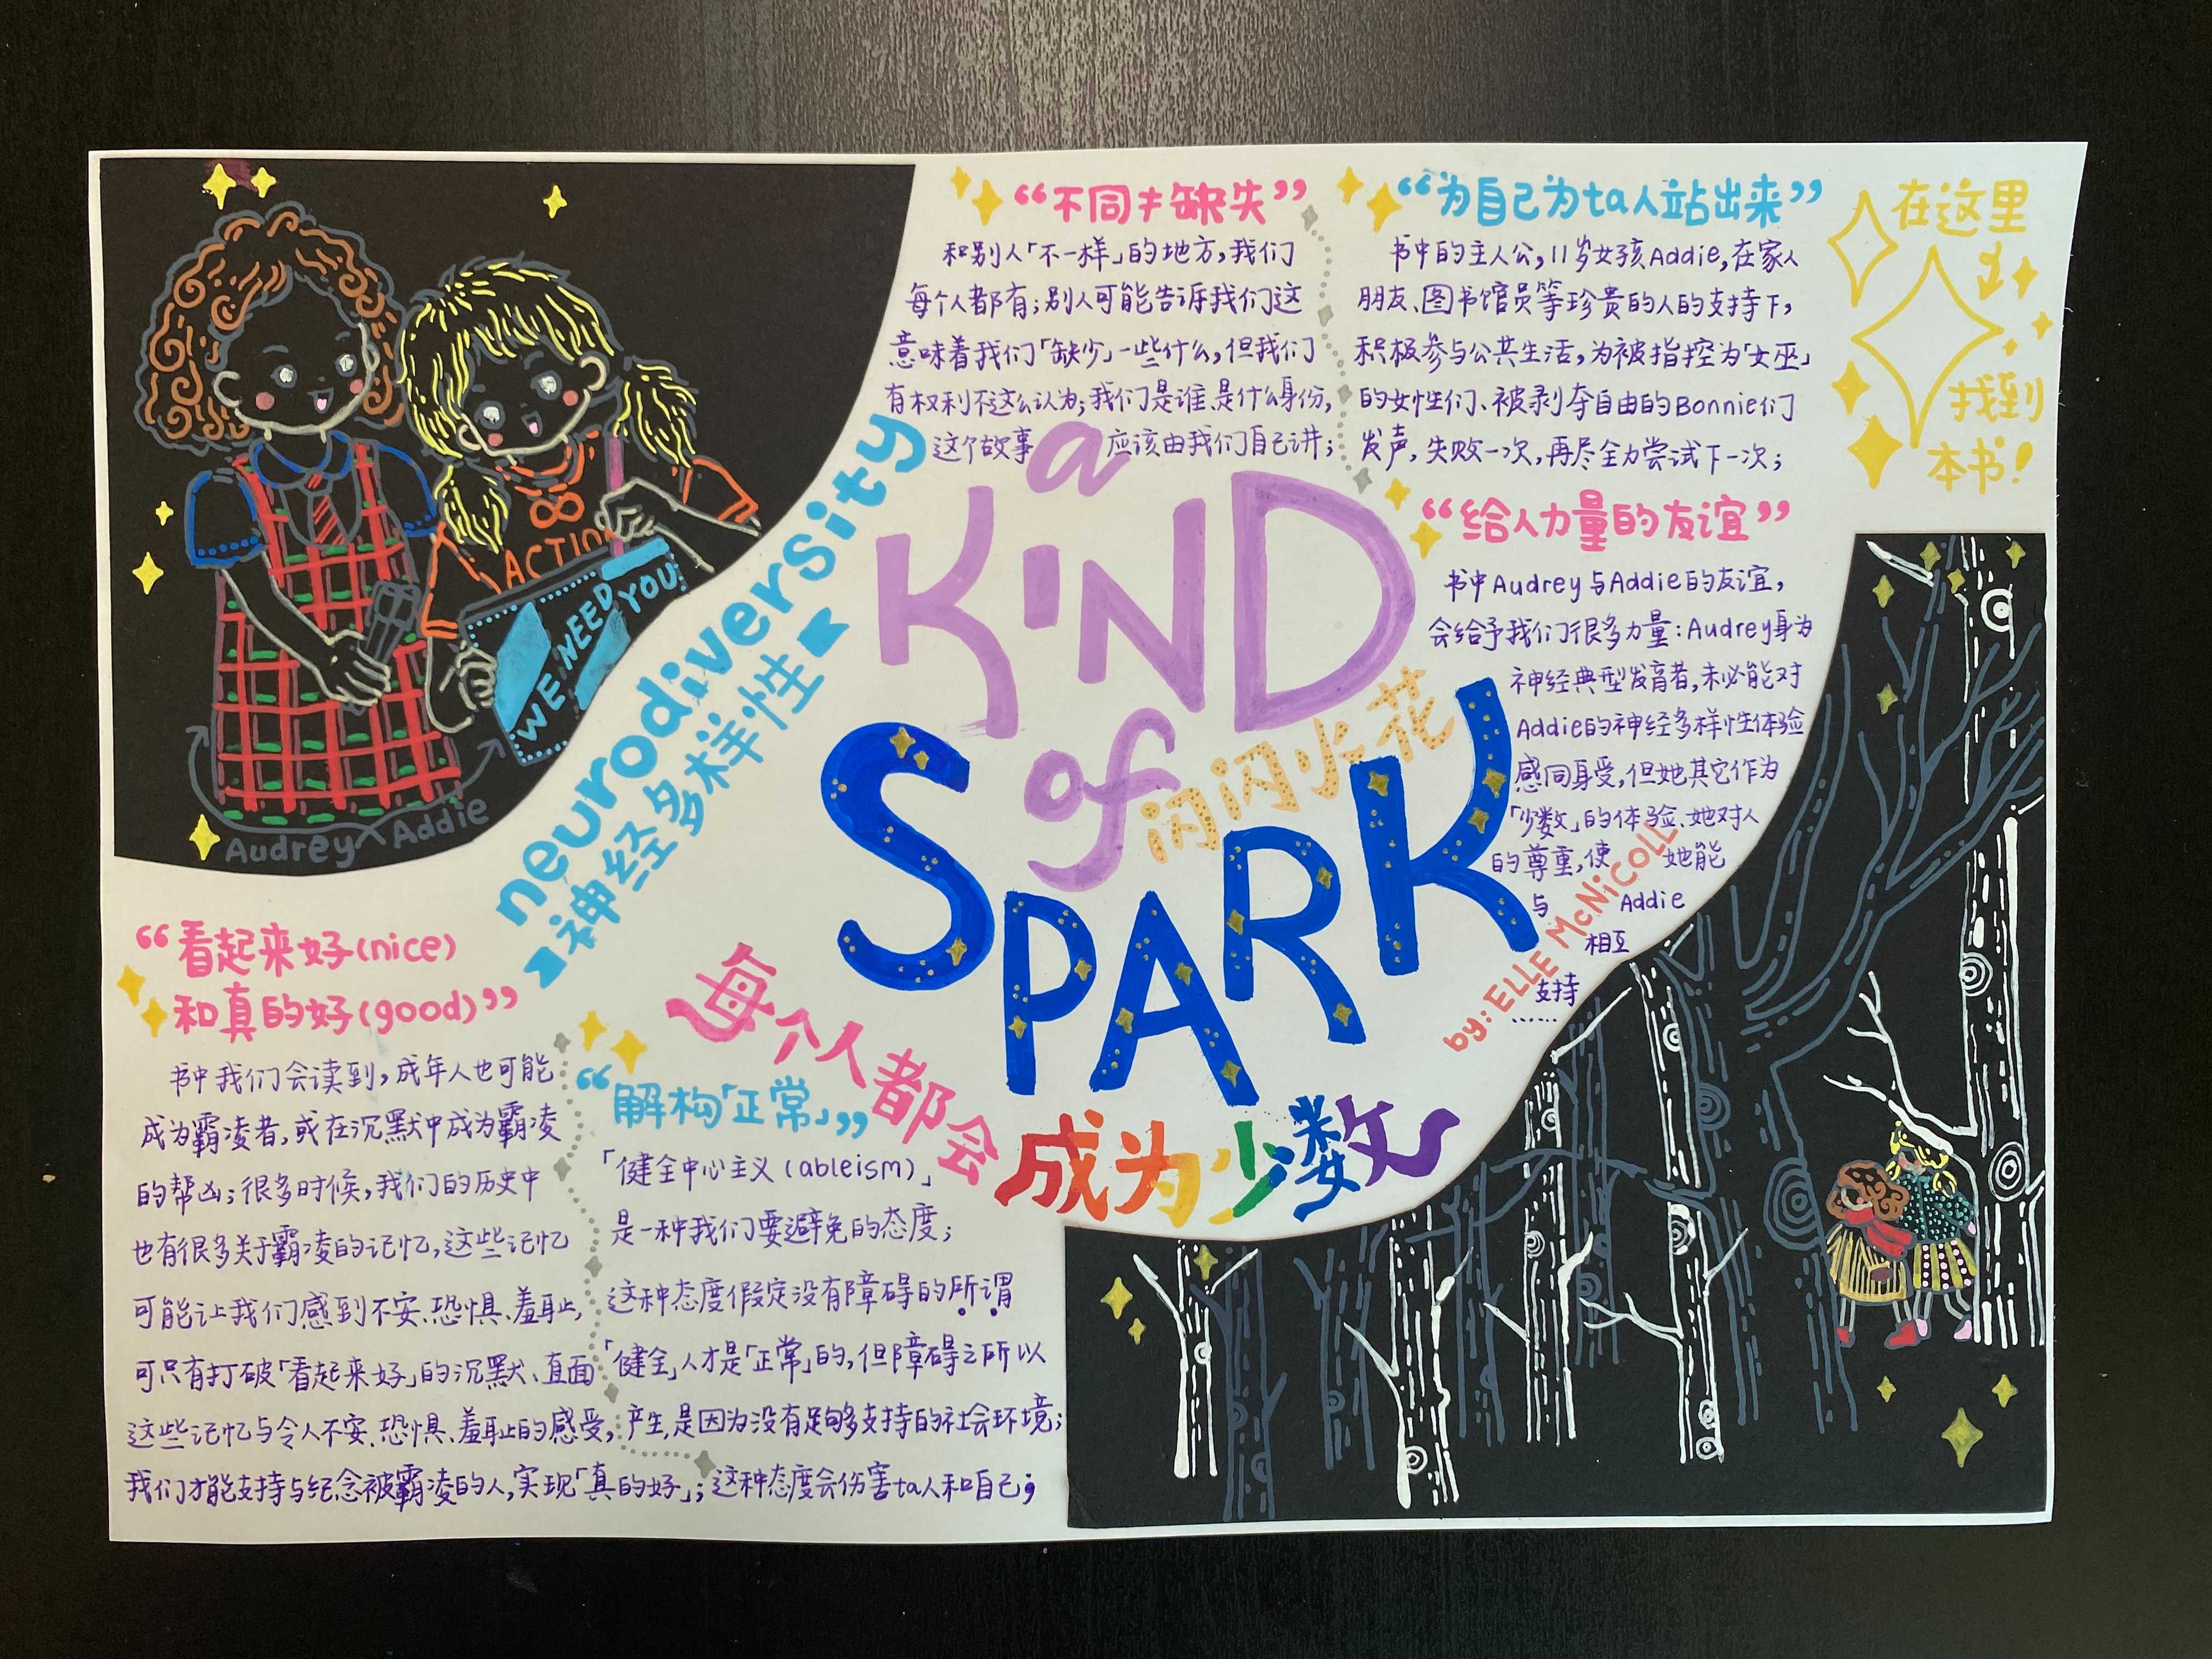 “不同≠缺失”
和别人「不一样」的地方,我们
每个人都有;别人可能告诉我们这
意味着我们「缺少」一些什么,但我们
有权利不这么认为;我们是谁、是什么身份,
这个故事 应该由我们自己讲;
“为自己为ta人站出来”
书中的主人公,11岁女孩Addie,在家人
朋友、图书馆员等珍贵的人的支持下,
积极参与公共生活,为被指控为「女巫」
的女性们、被剥夺自由的Bonnie们
发声,失败一次,再尽全力尝试下一次;
在这里
找到
本书!
“给人力量的友谊”
书中Audrey与Addie的友谊,
会给予我们很多力量:Audrey身为
神经典型发育者,未必能对
Addie的神经多样性体验
感同身受,但她其它作为
「少数」的体验、她对人
的尊重,使 她能
与 Addie
相互
支持
......
a
KiND
of
SPARK
闪闪火花
by: ELLE McNiCOLL
ACTION
WE NEED YOU
Audrey Addie
neurodiversity
神经多样性
每个人都会
成为少数
“看起来好(nice)
和真的好(good)”
书中我们会读到,成年人也可能
成为霸凌者,或在沉默中成为霸凌
的帮凶;很多时候,我们的历史中
也有很多关于霸凌的记忆,这些记忆
可能让我们感到不安、恐惧、羞耻,
可只有打破「看起来好」的沉默、直面
这些记忆与令人不安、恐惧、羞耻的感受,
我们才能支持与纪念被霸凌的人,实现「真的好」;
“解构「正常」”
「健全中心主义(ableism)」
是一种我们要避免的态度;
这种态度假定没有障碍的所谓
「健全」人才是「正常」的,但障碍之所以
产生,是因为没有足够多支持的社会环境;
这种态度会伤害ta人和自己;